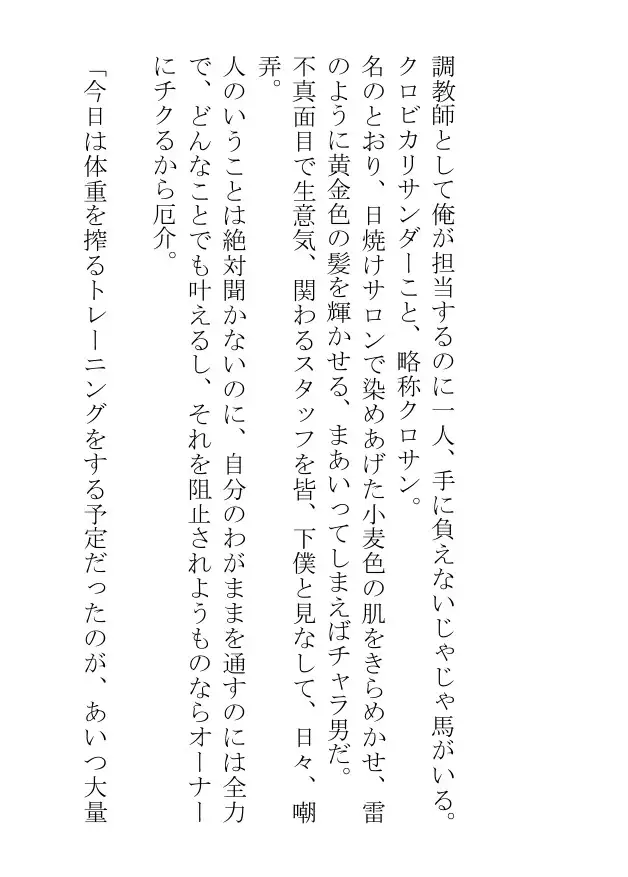 調教師として俺が担当するのに一人、手に負えないじゃじゃ馬がいる。
クロビカリサンダーこと、略称クロサン。
名のとおり、日焼けサロンで染めあげた小麦色の肌をきらめかせ、雷
のように黄金色の髪を輝かせる、まあいってしまえばチャラ男だ。
不真面目で生意気、関わるスタッフを皆、下僕と見なして、日々、嘲
弄。
人のいうことは絶対聞かないのに、自分のわがままを通すのには全力
で、どんなことでも叶えるし、それを阻止されようものならオーナー
にチクるから厄介。
「今日は体重を搾るトレーニングをする予定だったのが、あいつ大量